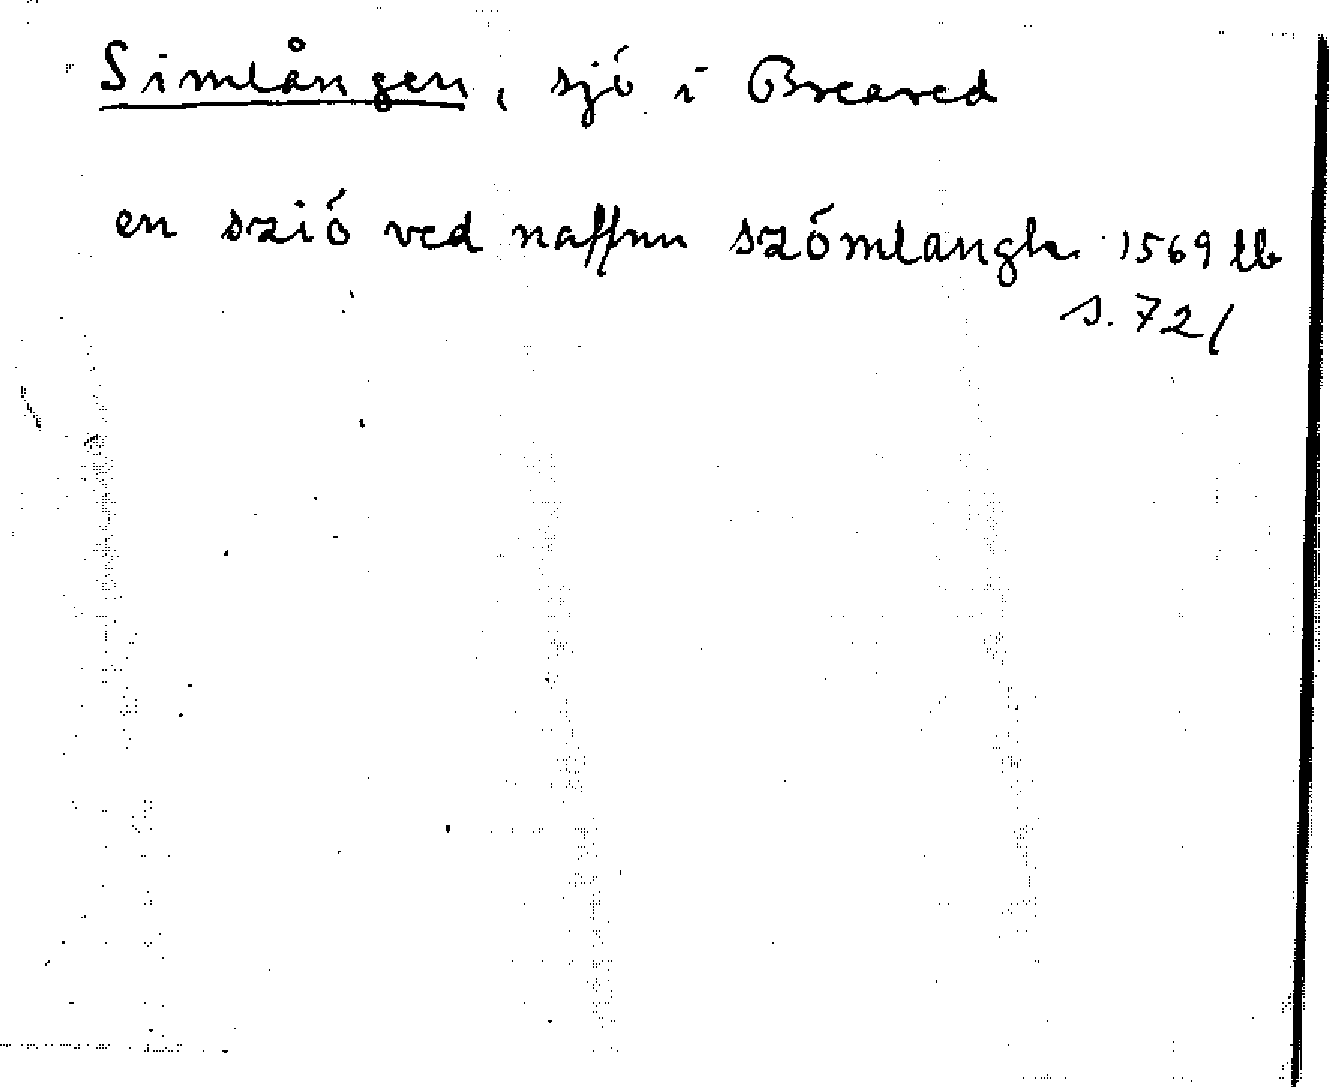 Simlången, sjó i Breared
en szió ved naffnn szómlangh 1569 lb
s. 72/